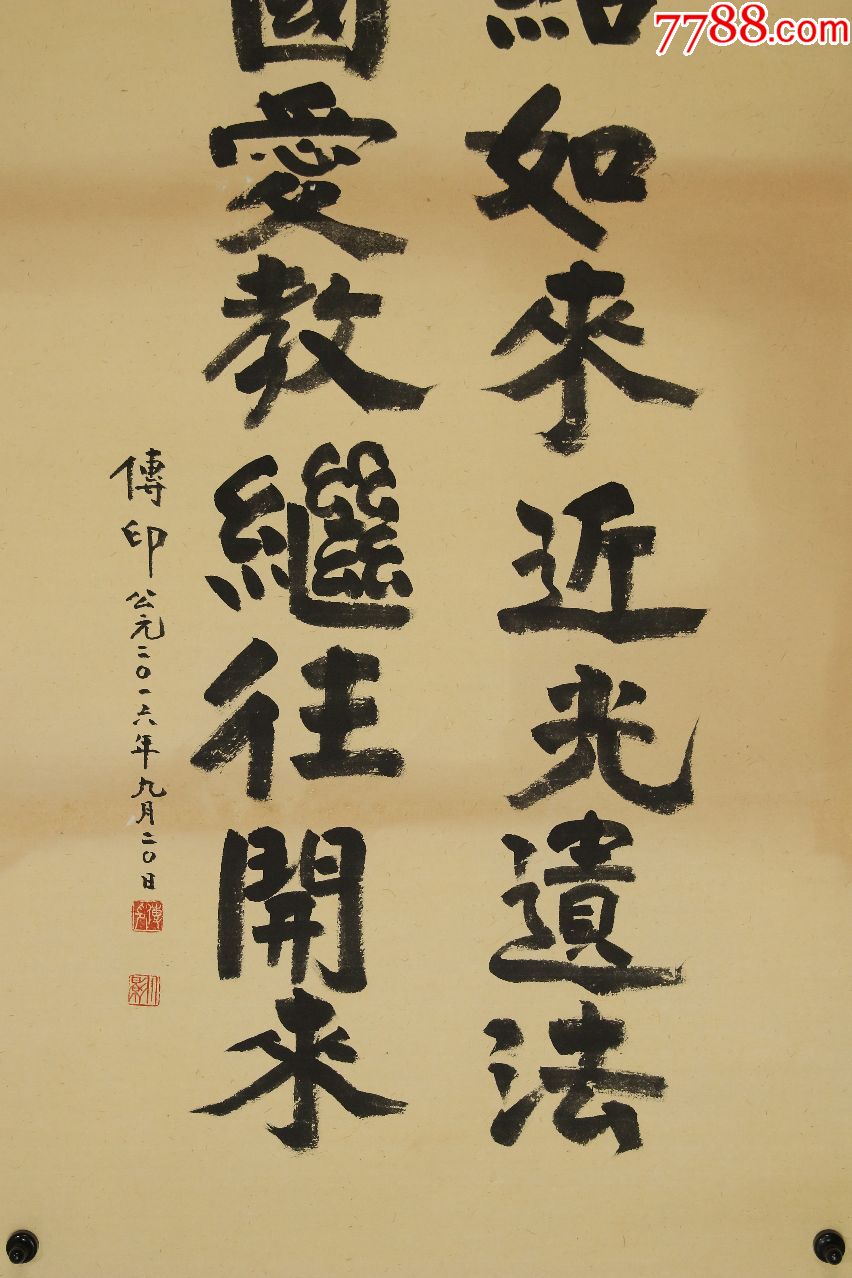 7788.com
紹如來近光遺法
國愛教繼往開來
傳印 公元二〇一六年九月二〇日
傳印